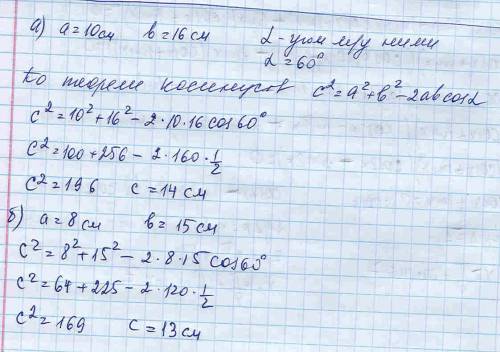 а) a=10см в=16см α-угол между ними
α=60°
По теореме косинусов c²=a²+в²-2aвcosα
c²=10²+16²-2·10·16cos60°
c²=100+256-2·160·1/2
c²=196 c=14см
б) a=8см в=15см
c²=8²+15²-2·8·15cos60°
c²=64+225-2·120·1/2
c²=169 c=13см